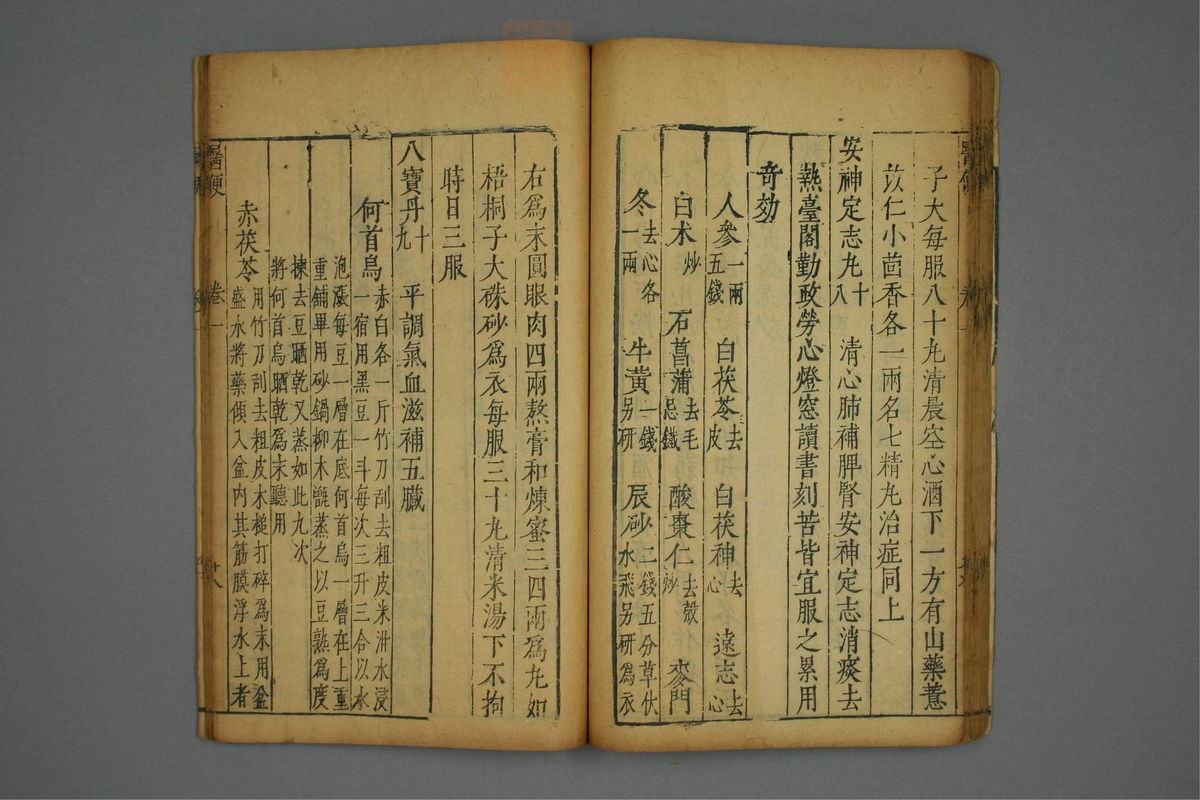 子大每服八十丸清晨空心酒下一方有山藥薏
苡仁小茴香各一兩名七精丸治症同上
安神定志丸十八 清心肺補脾腎安神定志消痰去
熱臺閣勤政勞心燈窓讀書刻苦皆宜服之累用
竒効
人參一兩五錢 白茯苓去皮 白茯神去心 遠志去心
白术炒 石菖蒲去毛忌鐵 酸棗仁去殼炒 麥門
冬去心各一兩 牛黃一錢另研 辰砂二錢五分草伏水飛另研爲衣
右爲末圓眼肉四兩熬膏和煉蜜三四兩爲丸如
梧桐子大硃砂爲衣每服三十丸清米湯下不拘
時日三服
八寶丹十九 平調氣血滋補五臟
何首烏赤白各一斤竹刀刮去粗皮米泔水浸一宿用黑豆一斗每次三升三合以水
泡漲每豆一層在底何首烏一層在上重重鋪畢用砂鍋柳木甑蒸之以豆熟爲度
揀去豆晒乾又蒸如此九次將何首烏晒乾爲末聽用
赤茯苓用竹刀刮去粗皮木槌打碎爲末用盆盛水將藥傾入盆内其筋膜浮水上者
醫便 卷一 廿八